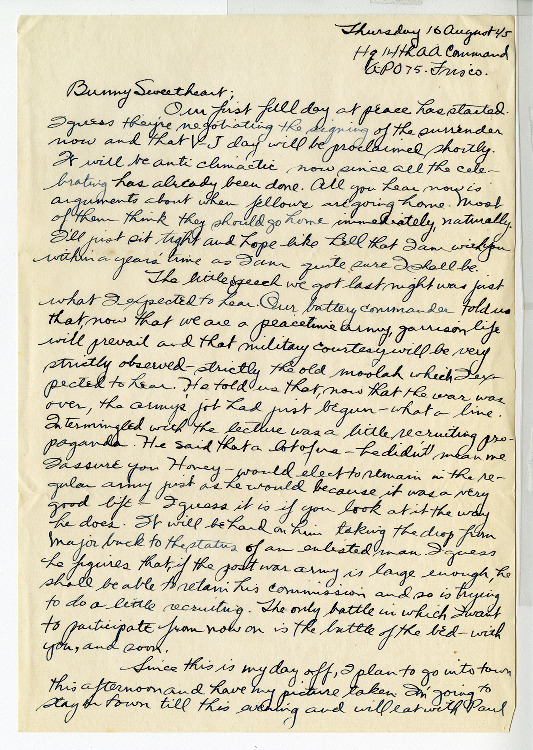 Thursday 16 August 45
Hq 14th AA Command
APO 75 - Frisco.
Bunny Sweetheart;
Our first full day at peace has started.
I guess they're negotiating the signing of the surrender
now and that V-J day will be proclaimed shortly.
It will be anti climactic now since all the cele-
brating has already been done. All you hear now is
arguments about when fellows are going home. Most
of them think they should go home immediately, naturally.
I'll just sit tight and hope like hell that I am with you
within a years' time as I am quite sure I shall be.
The little speech we got last night was just
what I expected to hear. Our battery commander told us
that, now that we are a peacetime army, garrison life
will prevail and that military courtesy will be very
strictly observed - strictly the old moolah which I ex-
pected to hear. He told us that, now that the war was
over, the army's job had just begun - what a line.
Intermingled with the lecture was a little recruiting pro-
paganda. He said that a lot of us - he didn't mean me
I assure you Honey - would elect to remain in the re-
gular army just as he would because it was a very
good life - I guess it is if you look at it the way
he does. It will be hard on him taking the drop from
Major back to the status of an enlisted man. I guess
he figures that, if the post war army is large enough, he
shall be able to retain his commission and so is trying
to do a little recruiting. The only battle in which I want
to participate from now on is the battle of the bed - with
you, and soon.
Since this is my day off, I plan to go into town
this afternoon and have my picture taken. I'm going to
stay in town till this evening and will eat with Paul